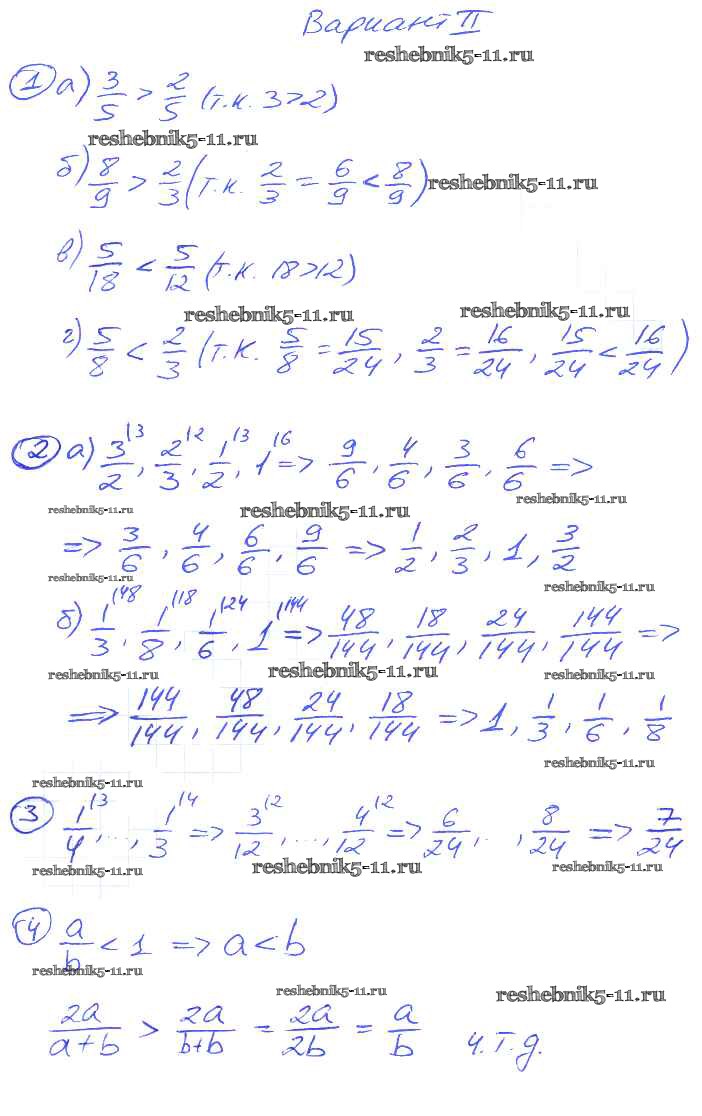 Вариант II
reshebnik5-11.ru
1 а) 3/5 > 2/5 (т.к. 3>2)
reshebnik5-11.ru
б) 8/9 > 2/3 (т.к. 2/3 = 6/9 < 8/9) reshebnik5-11.ru
в) 5/18 < 5/12 (т.к. 18>12)
reshebnik5-11.ru reshebnik5-11.ru
г) 5/8 < 2/3 (т.к. 5/8 = 15/24, 2/3 = 16/24, 15/24 < 16/24)
2 а) 3/2 \3, 2/3 \2, 1/2 \3, 1 \6 => 9/6, 4/6, 3/6, 6/6 =>
reshebnik5-11.ru reshebnik5-11.ru reshebnik5-11.ru
=> 3/6, 4/6, 6/6, 9/6 => 1/2, 2/3, 1, 3/2
reshebnik5-11.ru reshebnik5-11.ru
б) 1/3 \48, 1/8 \18, 1/6 \24, 1 \144 => 48/144, 18/144, 24/144, 144/144 =>
reshebnik5-11.ru reshebnik5-11.ru reshebnik5-11.ru
=> 144/144, 48/144, 24/144, 18/144 => 1, 1/3, 1/6, 1/8
reshebnik5-11.ru
reshebnik5-11.ru
3 1/4 \3, ..., 1/3 \4 => 3/12 \2, ..., 4/12 \2 => 6/24, .., 8/24 => 7/24
reshebnik5-11.ru reshebnik5-11.ru reshebnik5-11.ru
4 a/b < 1 => a < b
reshebnik5-11.ru
reshebnik5-11.ru reshebnik5-11.ru
2a/(a+b) > 2a/(b+b) = 2a/2b = a/b ч.т.д.